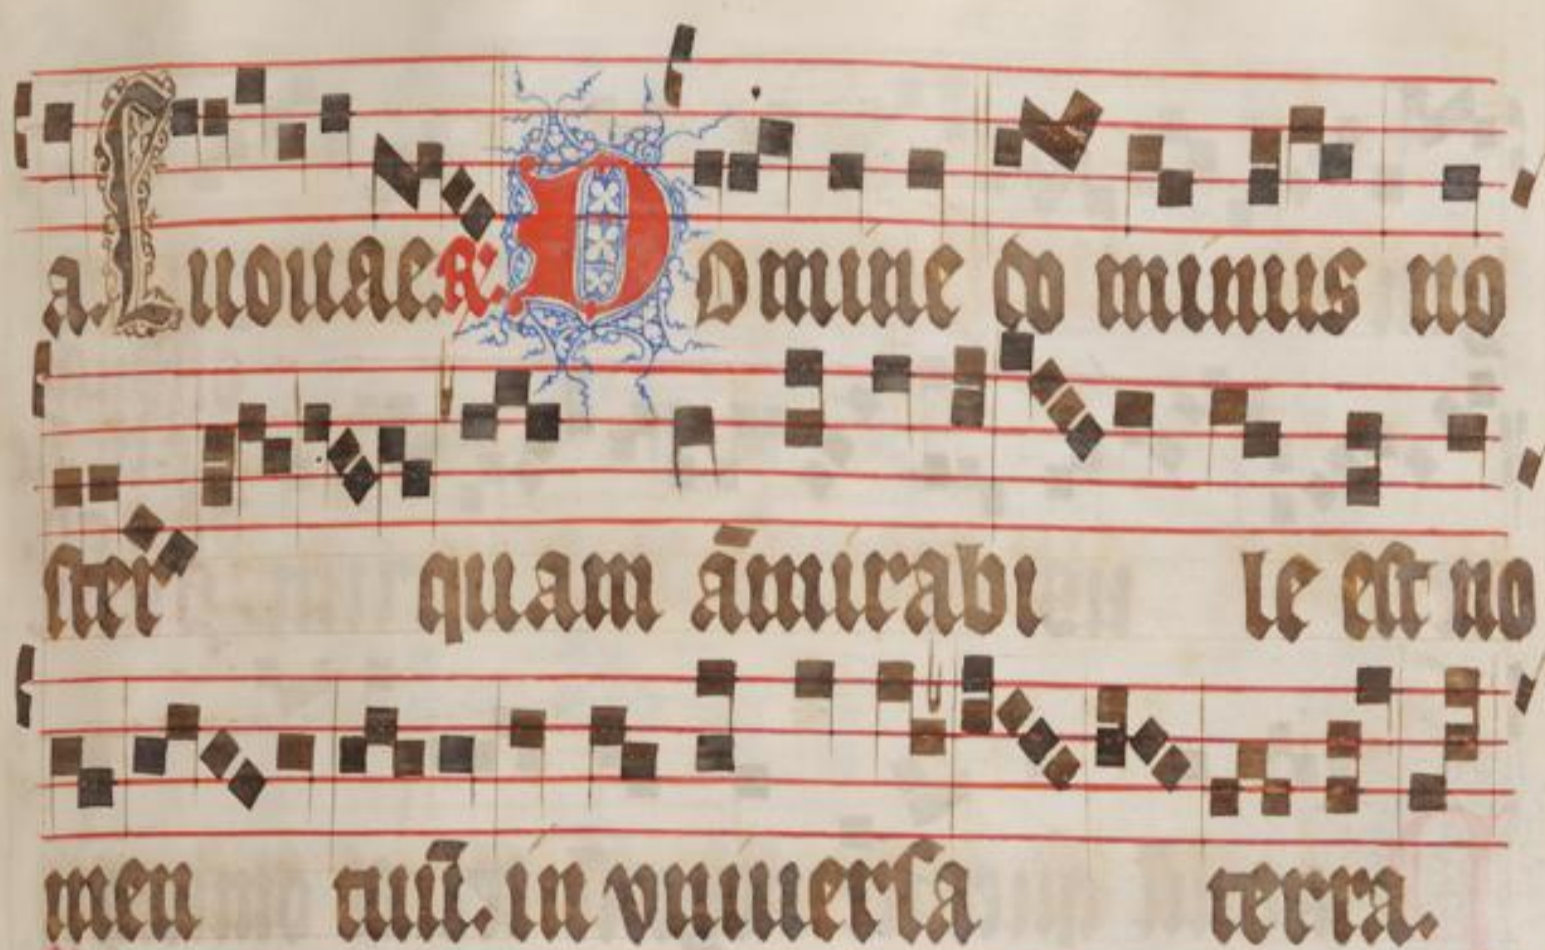 a. Euouae. R. Domine dominus no
ster quam ãmirabi le est no
men tuũ. in vniuersa terra.